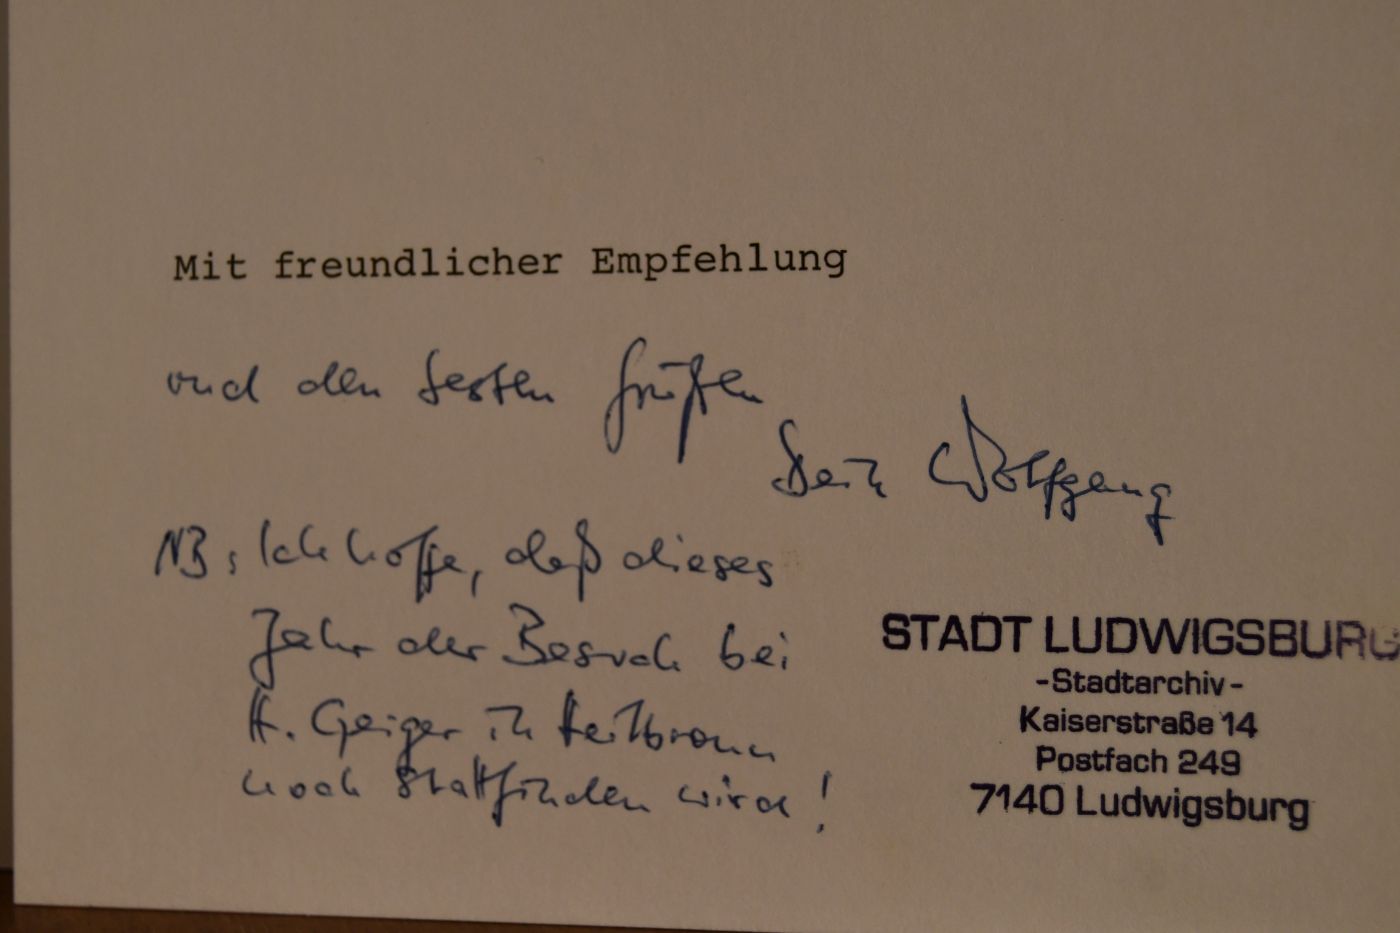 Mit freundlicher Empfehlung
und den besten Grüßen
Dein Wolfgang
NB: Ich hoffe, daß dieses
Jahr der Besuch bei
H. Geiger in Heilbronn
noch stattfinden wird!
STADT LUDWIGSBURG
-Stadtarchiv-
Kaiserstraße 14
Postfach 249
7140 Ludwigsburg